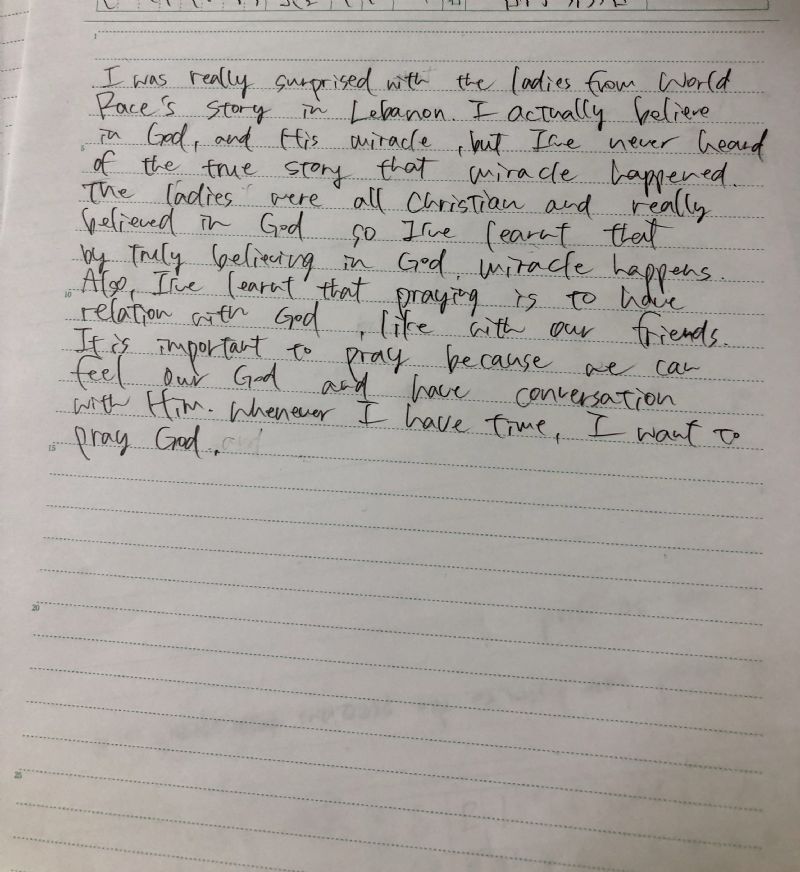 I was really surprised with the ladies from World
Race's story in Lebanon. I actually believe
in God, and His miracle, but I've never heard
of the true story that miracle happened.
The ladies were all Christian and really
believed in God so I've learnt that
by truly believing in God, miracle happens.
Also, I've learnt that praying is to have
relation with God, like with our friends.
It is important to pray because we can
feel our God and have conversation
with Him. Whenever I have time, I want to
pray God.
1
5
10
15
20
25